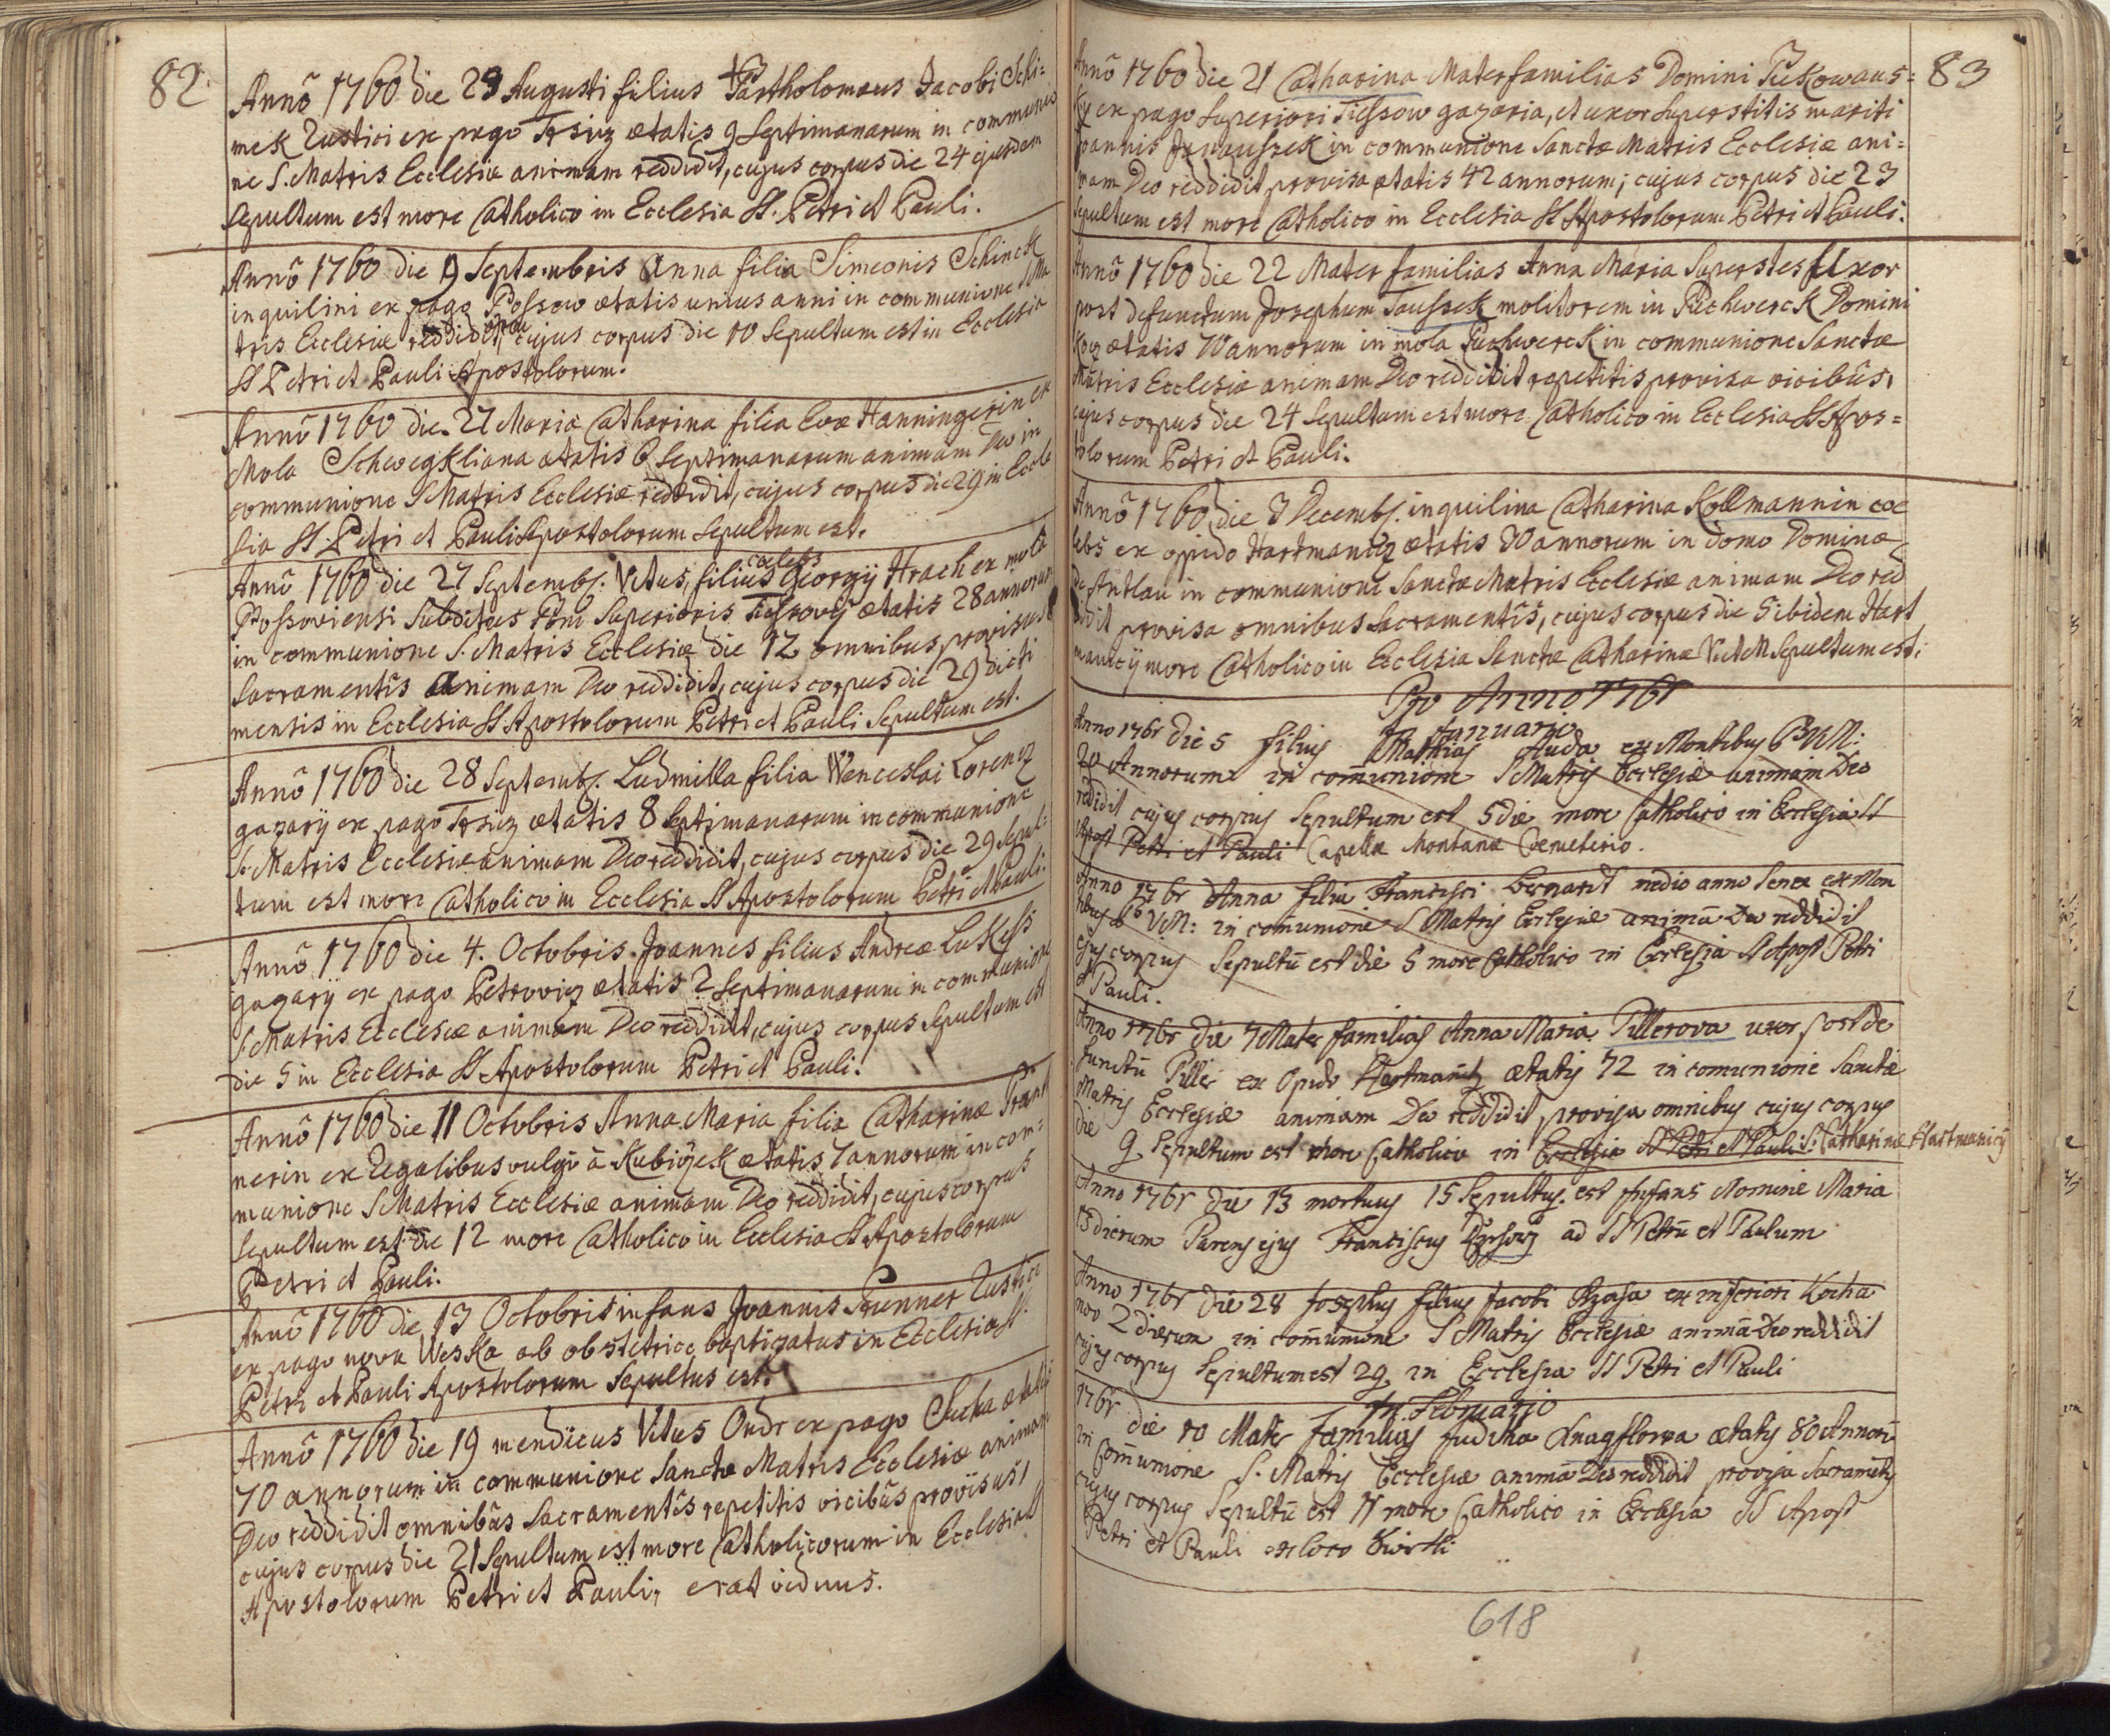 82
Annô 1760 die 23 Augusti filius Bartholomæus Jacobi Schi=
mek Rustici ex pago Trsitz ætatis 9 Septimanarum in communio
ne S. Matris Ecclesiæ animam reddidit, cujus corpus die 24 ejusdem
Sepultum est more Catholico in Ecclesia SS. Petri et Pauli.
Annô 1760 die 9 Septembris Anna filia Simeonis Schinek
inquilini ex pago Possow ætatis unius anni in communione S Ma
tris Ecclesiæ reddidit, cujus corpus die 10 Sepultum est in Ecclesia
SS Petri et Pauli Apostolorum.
Annô 1760 die 27 Maria Catharina filia Evæ Hanningerin ex
Mola Schwegkliana ætatis 6 Septimanarum animam Deo in
communione S Matris Ecclesiæ reddidit, cujus corpus die 29 in Eccle
sia SS. Petri et Pauli Apostolorum Sepultum est.
Annô 1760 die 27 Septemb. Vitus, filius cœlebs Georgÿ Hrach ex molâ
Possoviensi Subditus Superioris Tiessoviÿ ætatis 28 annorum
in communione S. Matris Ecclesiæ die 12 omnibus provisus
Sacramentis animam Deo reddidit, cujus corpus die 29 dicti
mensis in Ecclesia SS Apostolorum Petri et Pauli Sepultum est.
Annô 1760 die 28 Septemb. Ludmilla filia Wenceslai Lorenz
gazarÿ ex pago Trsitz ætatis 8 Septimanarum in communione
S. Matris Ecclesiæ animam Deo reddidit, cujus corpus die 29 Sepul=
tum est more Catholico in Ecclesia SS Apostolorum Petri et Pauli.
Annô 1760 die 4. Octobris Joannes filius Andreæ Lukess
gazarÿ ex pago Petrowiz ætatis 2 Septimanarum in communione
S Matris Ecclesiæ animam Deo reddidit, cujus corpus Sepultum est
die 5 in Ecclesia SS Apostolorum Petri et Pauli.
Annô 1760 die 11 Octobris Anna Maria filia Catharinæ
nerin ex Regalibus vulgô â Kubiÿcek ætatis 7 annorum in com=
munione S Matris Ecclesiæ animam Deo reddidit, cujus corpus
Sepultum est die 12 more Catholico in Ecclesia SS Apostolorum
Petri et Pauli.
Annô 1760 die 13 Octobris infans Joannis Brunner Rustici
ex pago nova Weska ab obstetrice baptizatus in Ecclesia SS.
Petri et Pauli Apostolorum Sepultus est.
Annô 1760 die 19 mendicus Vitus Ondr ex pago Sucha ætatis
70 annorum in communione Sanctæ Matris Ecclesiæ animam
Deo reddidit omnibus Sacramentis repetitis vicibus provisus,
cujus corpus die 21 Sepultum est more Catholicorum in Ecclesia SS
Apostolorum Petri et Pauli, erat viduus.
83
Annô 1760 die 21 Catharina Materfamilias Domini Pukowans=
ky ex pago Superiori Tiessow gazaria, et uxor Superstitis mariti
Joannis Janoussek in communione Sanctæ Matris Ecclesiæ ani=
mam Deo reddidit provisa ætatis 42 annorum, cujus corpus die 23
Sepultum est more Catholico in Ecclesia SS Apostolorum Petri et Pauli.
Annô 1760 die 22 Mater familias Anna Maria Superstes Uxor
post defunctum Josephum Taussek molitorem in Puchwerck Domini
Koz ætatis 70 annorum in mola Puchwerck in communione Sanctæ
Matris Ecclesiæ animam Deo reddidit repetitis provisa vicibus,
cujus corpus die 24 Sepultum est more Catholico in Ecclesia SS Apos=
tolorum Petri et Pauli.
Annô 1760 die 3 Decemb. inquilina Catharina Kollmannin cœ
lebs ex oppido Hartmanitz ætatis 30 annorum in domo Dominæ
De Antlau in communione Sanctæ Matris Ecclesiæ animam Deo red
didit provisa omnibus Sacramentis, cujus corpus die 5 ibidem Hart
manicÿ more Catholico in Ecclesia Sanctæ Catharinæ V et M Sepultum est.
Pro Anno 1761
In Januario
Anno 1761 die 5 filius Mathias Auda ex Montibus B V M:
20 Annorum in communione S Matris Ecclesiæ animam Deo
reddidit cujus corpus Sepultum est 5 die more Catholico in Ecclesia SS
Apost Petri et Pauli Capellæ Montanæ Cemeterio.
Anno 1761 Anna filia Francisci Bernardt medio anno Senex ex Mon
tibus B V M: in communione S Matris Ecclesiæ animã Deo reddidit
ejus corpus Sepultũ est die 5 more Catholico in Ecclesia SS Apost Petri
et Pauli.
Anno 1761 die 7 Mater familias Anna Maria Pillerova uxor post de
functũ Piller ex Opido Hartmanitz ætatis 72 in comunione Sanctæ
Matris Ecclesiæ animam Deo reddidit provisa omnibus cujus corpus
die 9 Sepultum est more Catholico in Ecclesia SS Petri et Pauli S: Catharinæ Hartmanicÿ
Anno 1761 die 13 mortuus 15 Sepultus est Infans Nomine Maria
13 dierum Parens ejus Franciscus ad SS Petrũ et Paulum
Anno 1761 die 28 Josephus filius Jacobi ex inferiori Kochа
nov 2 dierum in comunione S Matris Ecclesiæ animã Deo reddidit
cujus corpus Sepultum est 29 in Ecclesia SS Petri et Pauli
In Februario
1761 die 10 Mater familias Juditha ætatis 80 Annorũ
in Comunione S. Matris Ecclesiæ animã Deo reddidit provisa Sacramentis
cujus corpus Sepultũ est 11 more Catholico in Ecclesia SS Apost
Petri et Pauli ex loco
618